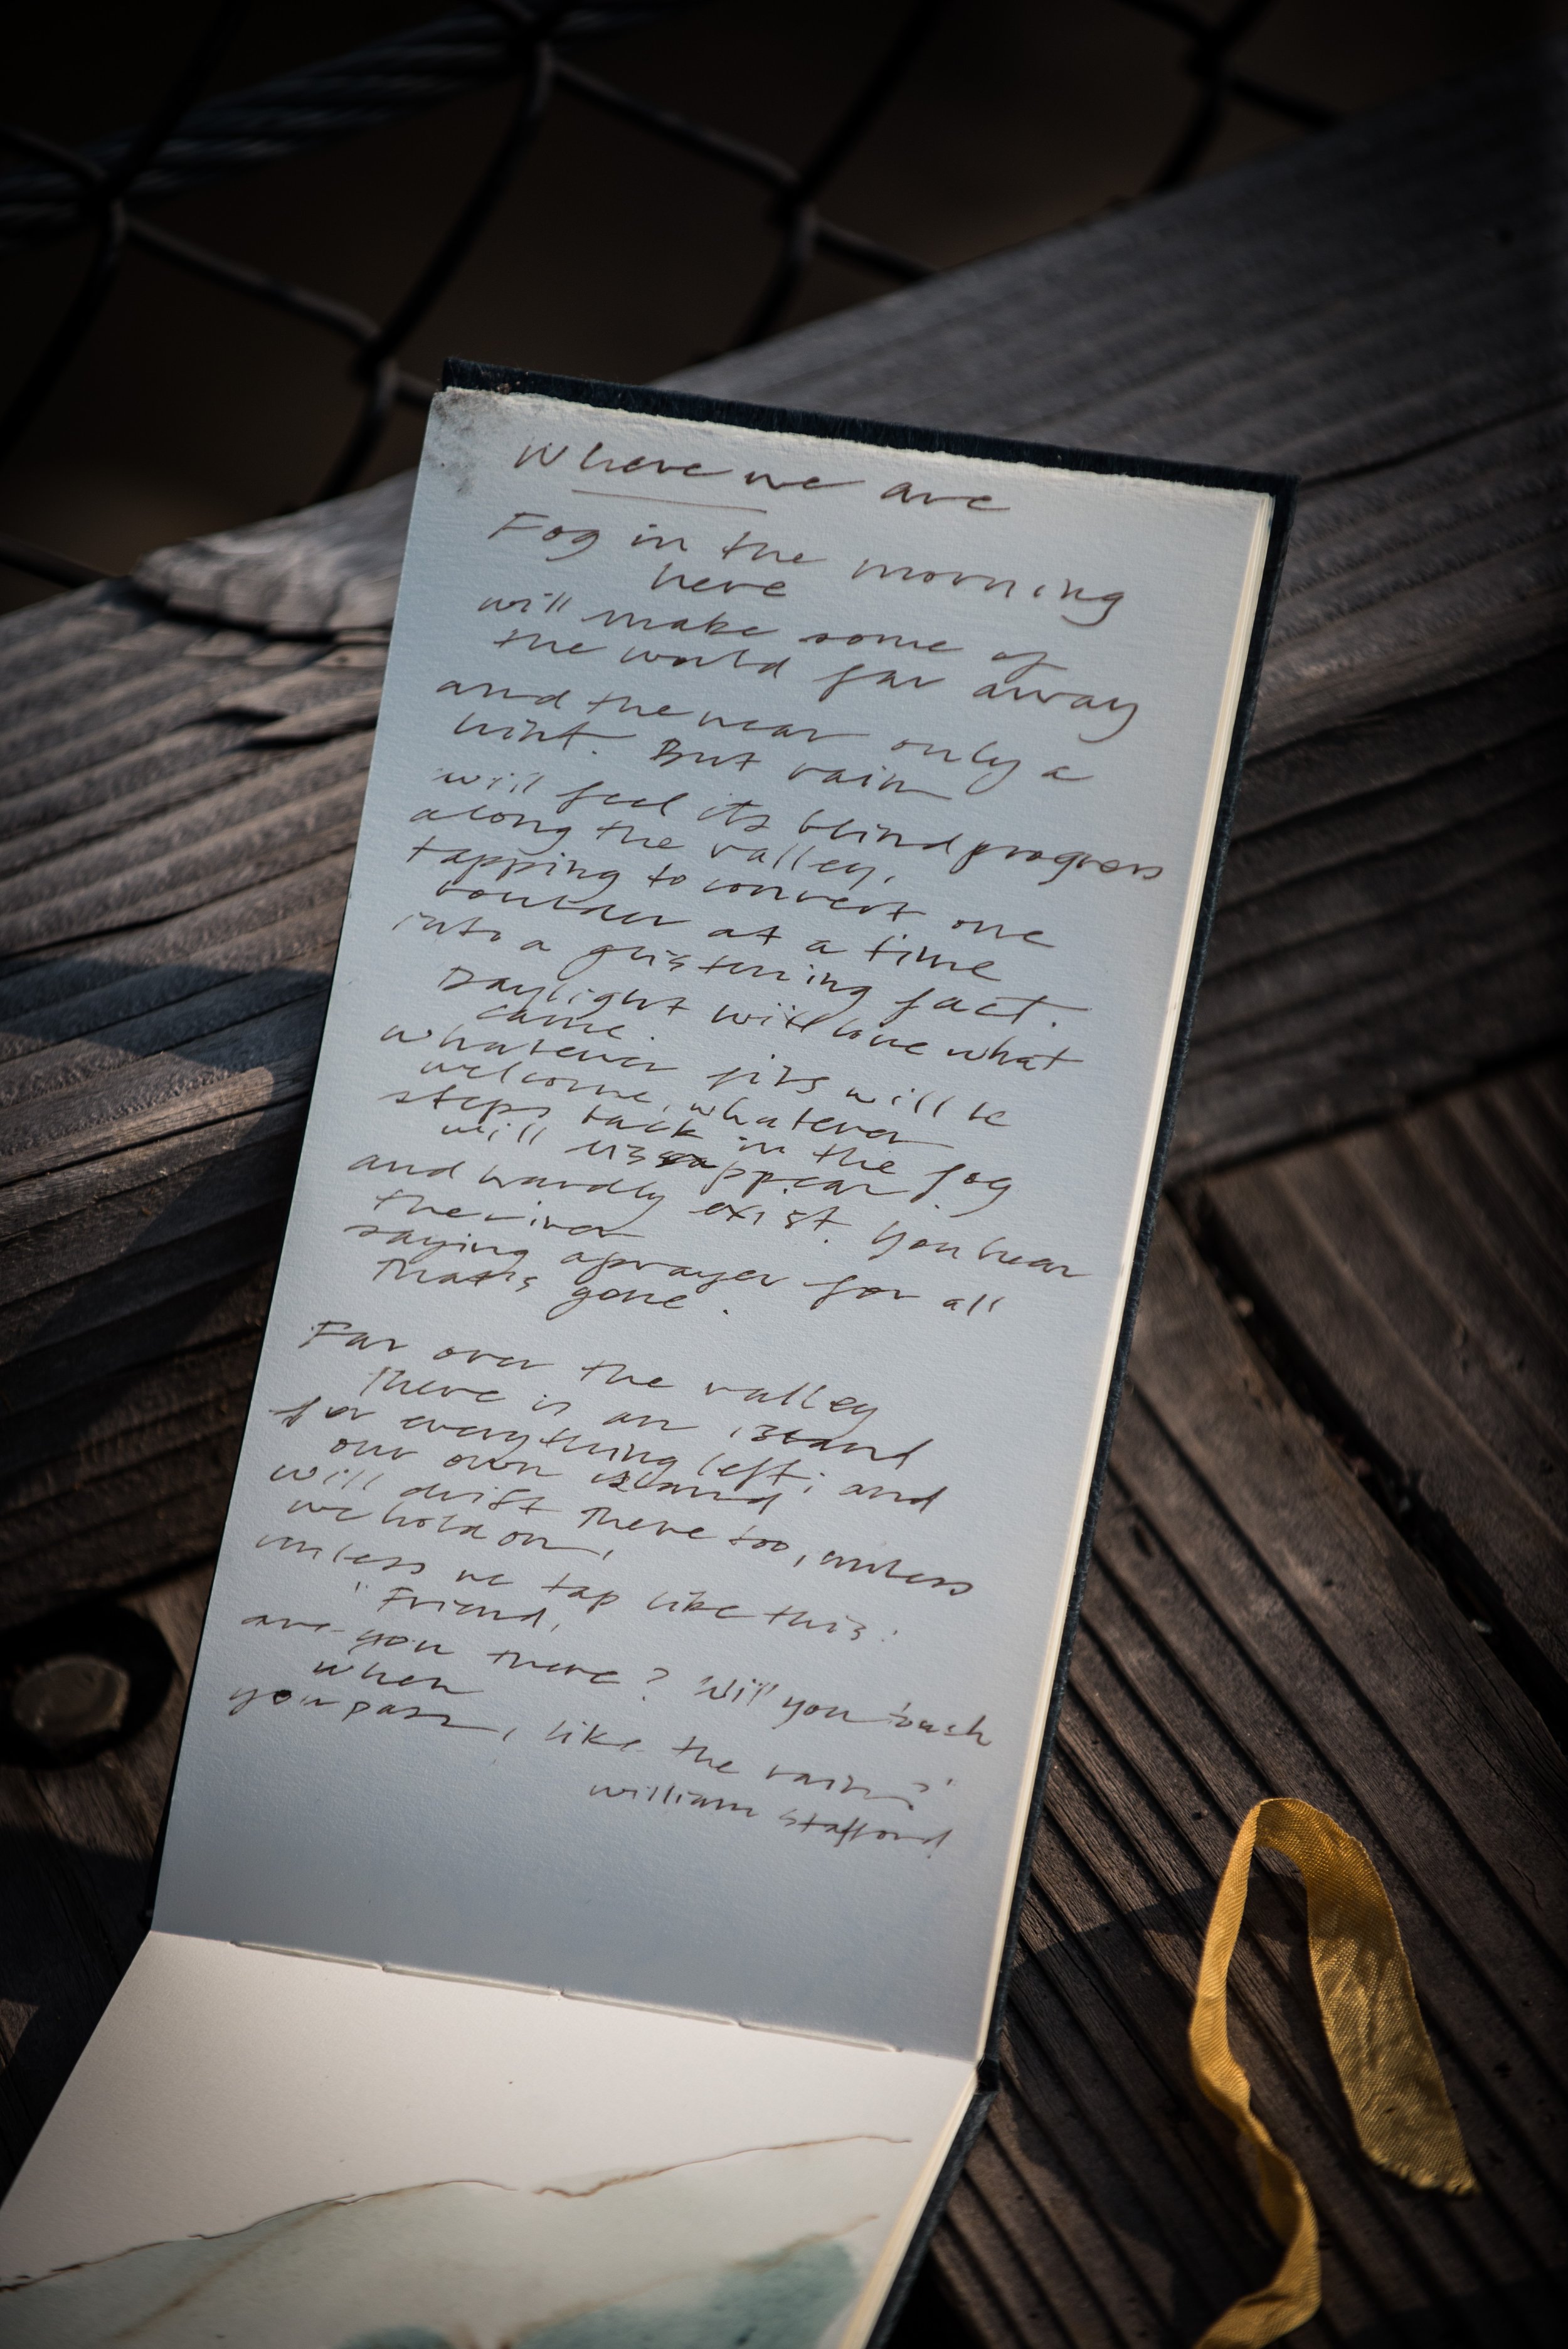 Where we are
Fog in the morning
here
will make some of
the world far away
and the near only a
hint. But rain
will feel its blind progress
along the valley,
tapping to convert one
boulder at a time
into a glistening fact.
Daylight will love what
came.
whatever fits will be
welcome, whatever
steps back in the fog
will disappear
and hardly exist. You hear
the river
saying a prayer for all
that's gone.
Far over the valley
there is an island
for everything left; and
our own island
will drift there too, unless
we hold on,
unless we tap like this:
"Friend,
are you there? Will you touch
when
you pass, like the rain?"
William Stafford